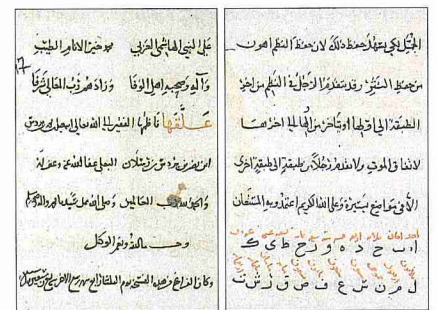 الجمل لكي يسهل حفظ ذلك لان حفظ النظم اهون
من حفظ النثر وقد نقدم الرجل في النظم من اخر
الطبقة الى اولها او نتاخر من اولها الى اخرها
لاتفاق الموت ولا نقدم رجلا من طبقة الى طبقة اخرى
الا في مواضع يسيرة وعلى الله الكريم اعتمد وبه المستعان
ا ب ج د ه و ز ح ط ى ك
ل م ن س ع ف ص ق ر ش ت
على النبي الهاشمي العربي محمد خير الانام الطيب
واله وصحبه اهل الوفا وزادهم رب المعالي شرفا
علقها ناظمها الفقير الى الله تعالى اسمعيل بن بردس
ابن نصر بن بردس بن رسلان البعلي عفا الله عنه
والحمد لله رب العالمين وصلى الله على سيدنا محمد واله وسلم
وحسبنا الله ونعم الوكيل
وكان الفراغ من هذه النسخة يوم الثلاثا